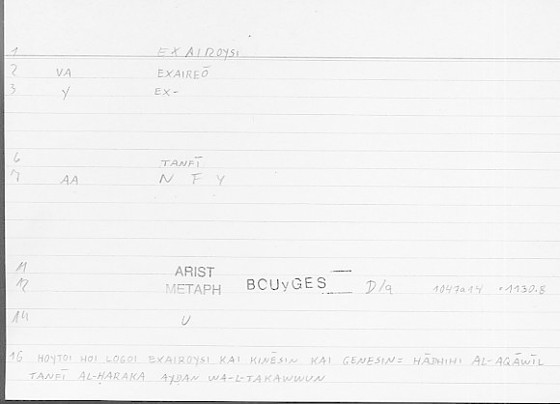 1 EXAIROYSI
2 VA EXAIREŌ
3 Y EX-
6 TANFĪ
7 AA N F Y
11 ARIST
12 METAPH BCUyGES D/a 1047a14 •1130.8
14 U
16 HOYTOI HOI LOGOI EXAIROYSI KAI KINĒSIN KAI GENESIN = HĀDHIHI AL-AQĀWĪL
TANFĪ AL-ḤARAKA AYḌAN WA-L-TAKAWWUN